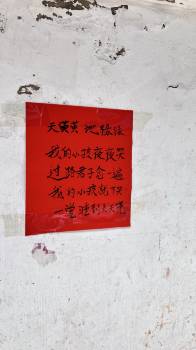 天黄黄 地绿绿
我的小孩夜夜哭
过路君子念一遍
我的小孩就不哭
一觉睡到大天亮